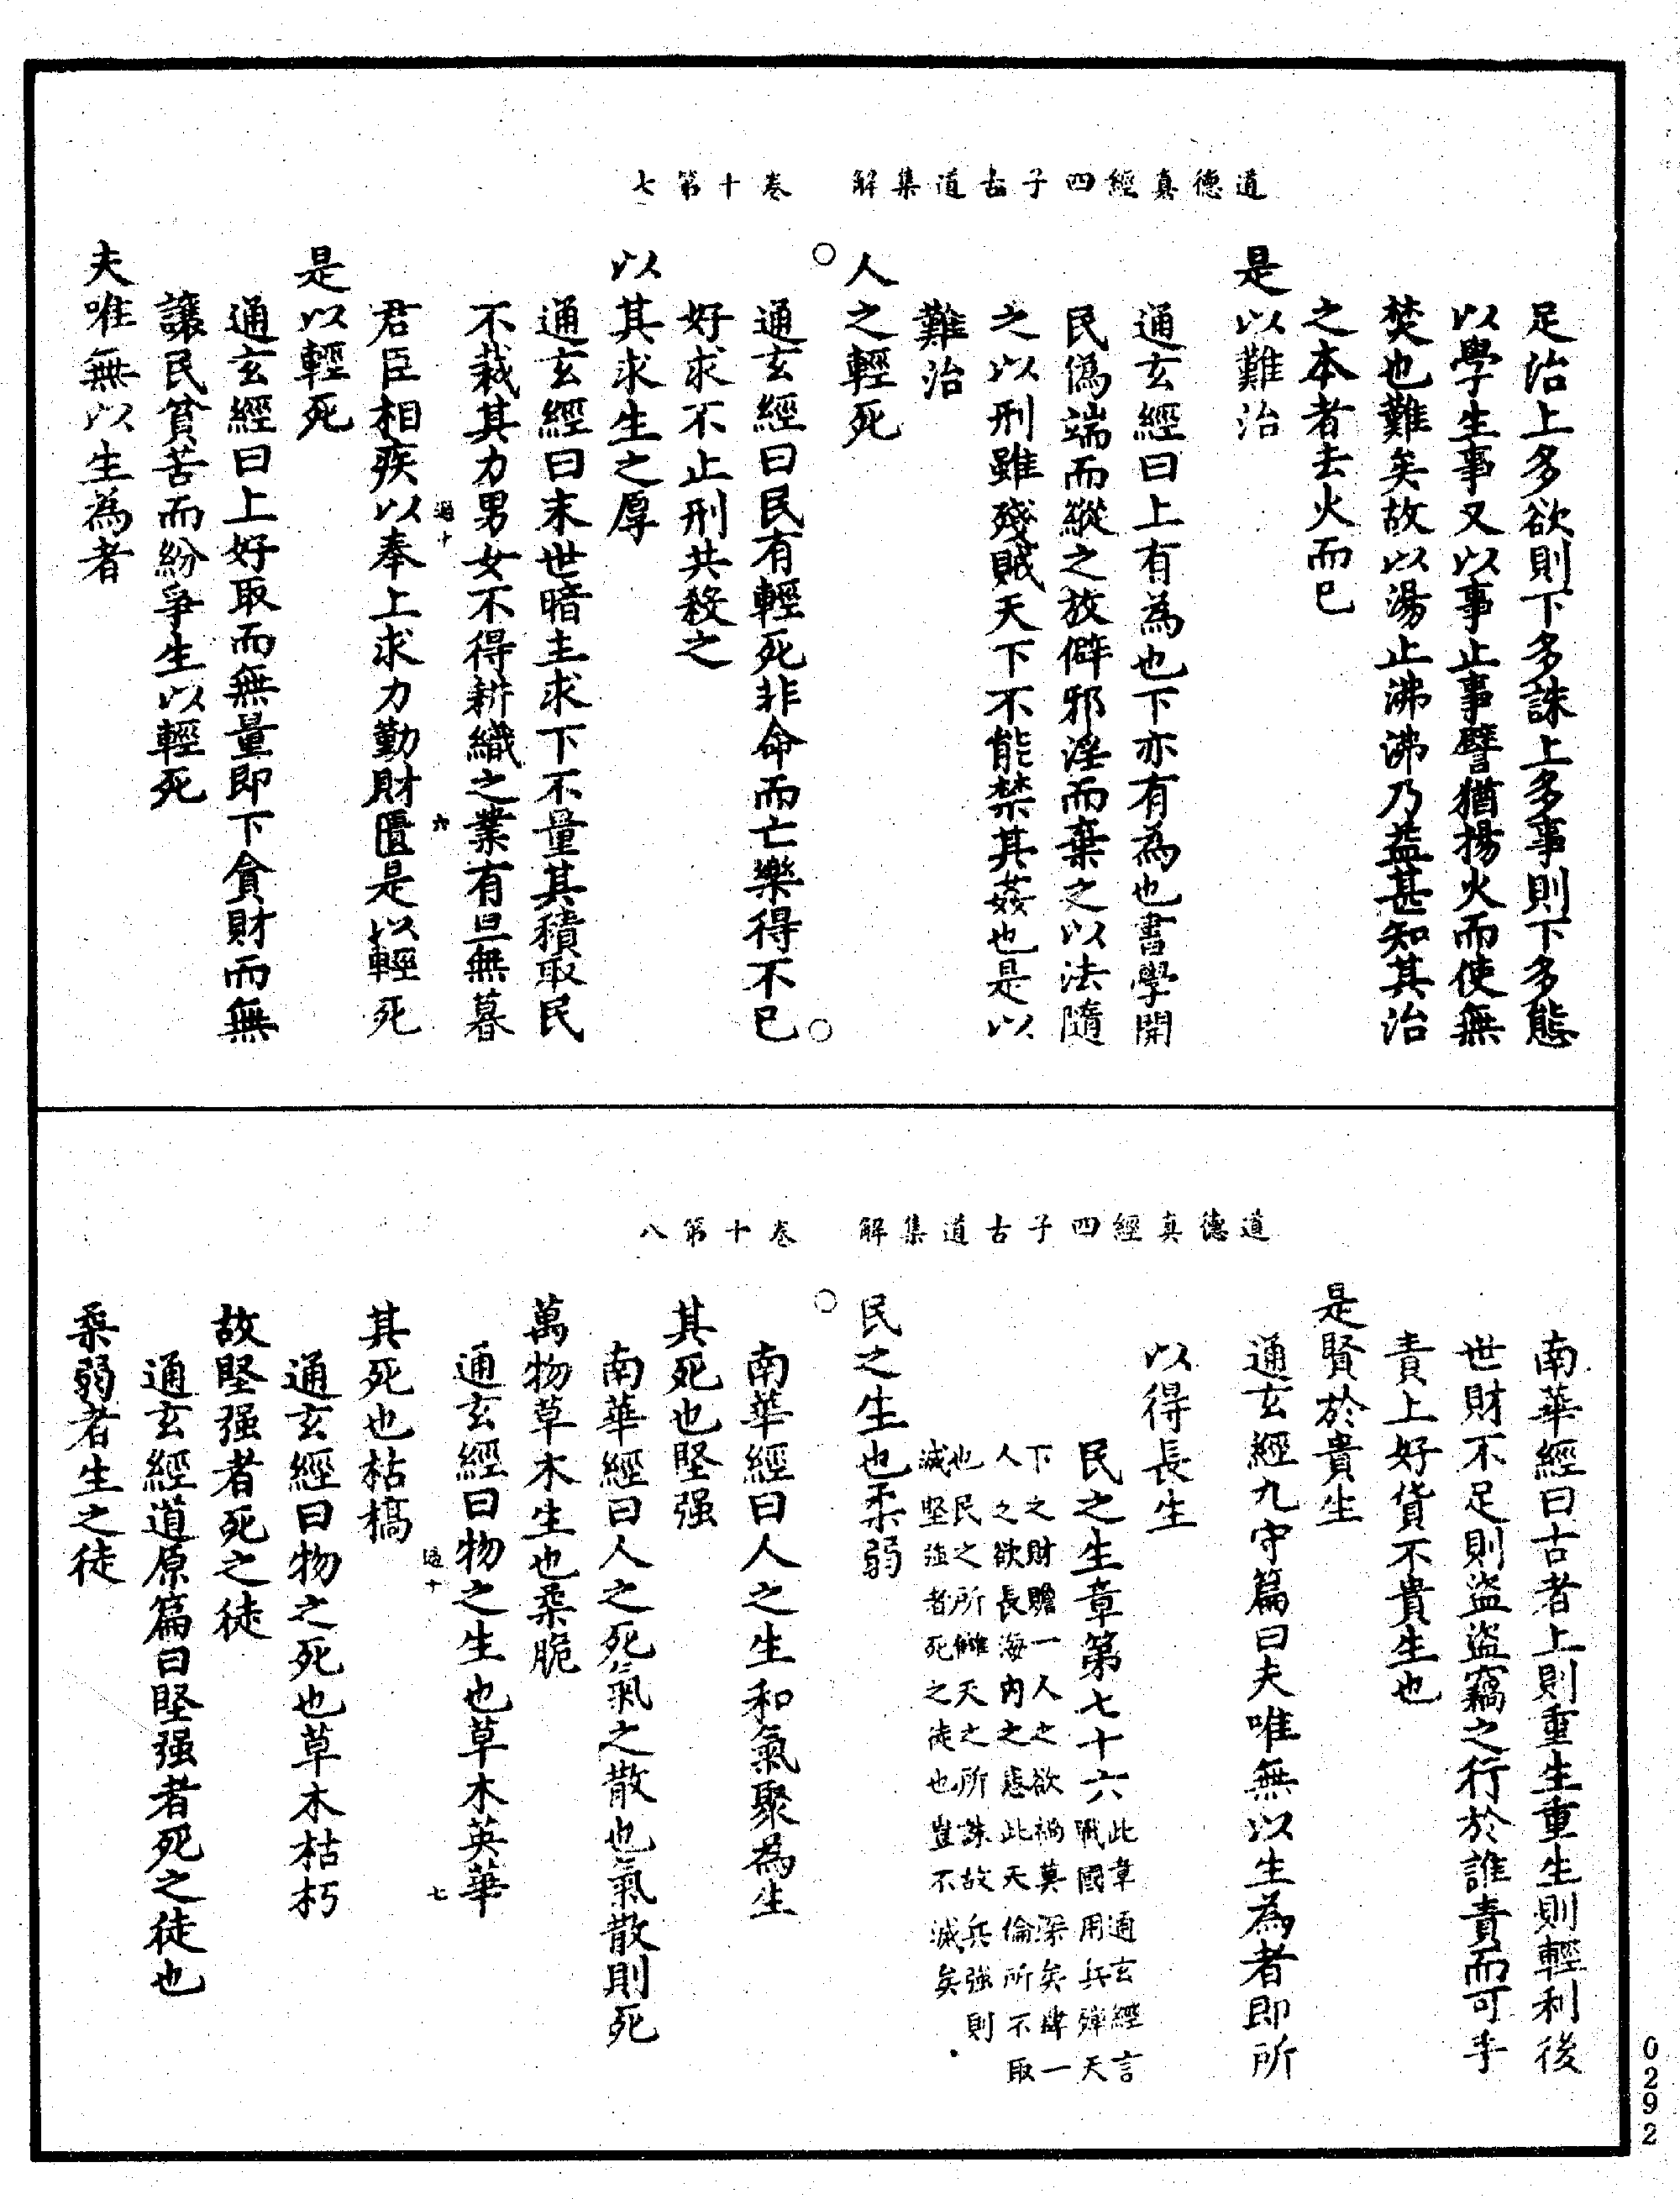 道德真經四子古道集解　卷十第七
足治上多欲則下多詐上多事則下多態
以學生事又以事止事譬猶揚火而使無
焚也難矣故以湯止沸沸乃益甚知其治
之本者去火而已
是以難治
通玄經曰上有為也下亦有為也書學開
民偽端而縱之放僻邪淫而棄之以法隨
之以刑雖殘賊天下不能禁其姦也是以
難治
○
人之輕死
通玄經曰民有輕死非命而亡樂得不已
○
好求不止刑共殺之
以其求生之厚
通玄經曰末世暗主求下不量其積取民
不裁其力男女不得耕織之業有旦無暮
過十　六
君臣相疾以奉上求力勤財匱是以輕死
是以輕死
通玄經曰上好取而無量即下貪財而無
讓民貧苦而紛爭生以輕死
夫唯無以生為者
道德真經四子古道集解　卷十第八
南華經曰古者上則重生重生則輕利後
世財不足則盜盜竊之行於誰責而可乎
責上好貨不貴生也
是賢於貴生
通玄經九守篇曰夫唯無以生為者即所
以得長生
民之生章第七十六此章通玄經言
戰國用兵殫天
下之財贍一人之欲禍莫深矣肆一
人之欲長海內之患此天倫所不取
也民之所讎天之所誅故兵強則
滅堅強者死之徒也豈不滅矣
○
民之生也柔弱
南華經曰人之生和氣聚為生
其死也堅强
南華經曰人之死氣之散也氣散則死
萬物草木生也柔脆
通玄經曰物之生也草木英華
過十　七
其死也枯槁
通玄經曰物之死也草木枯朽
故堅强者死之徒
通玄經道原篇曰堅强者死之徒也
柔弱者生之徒
0292